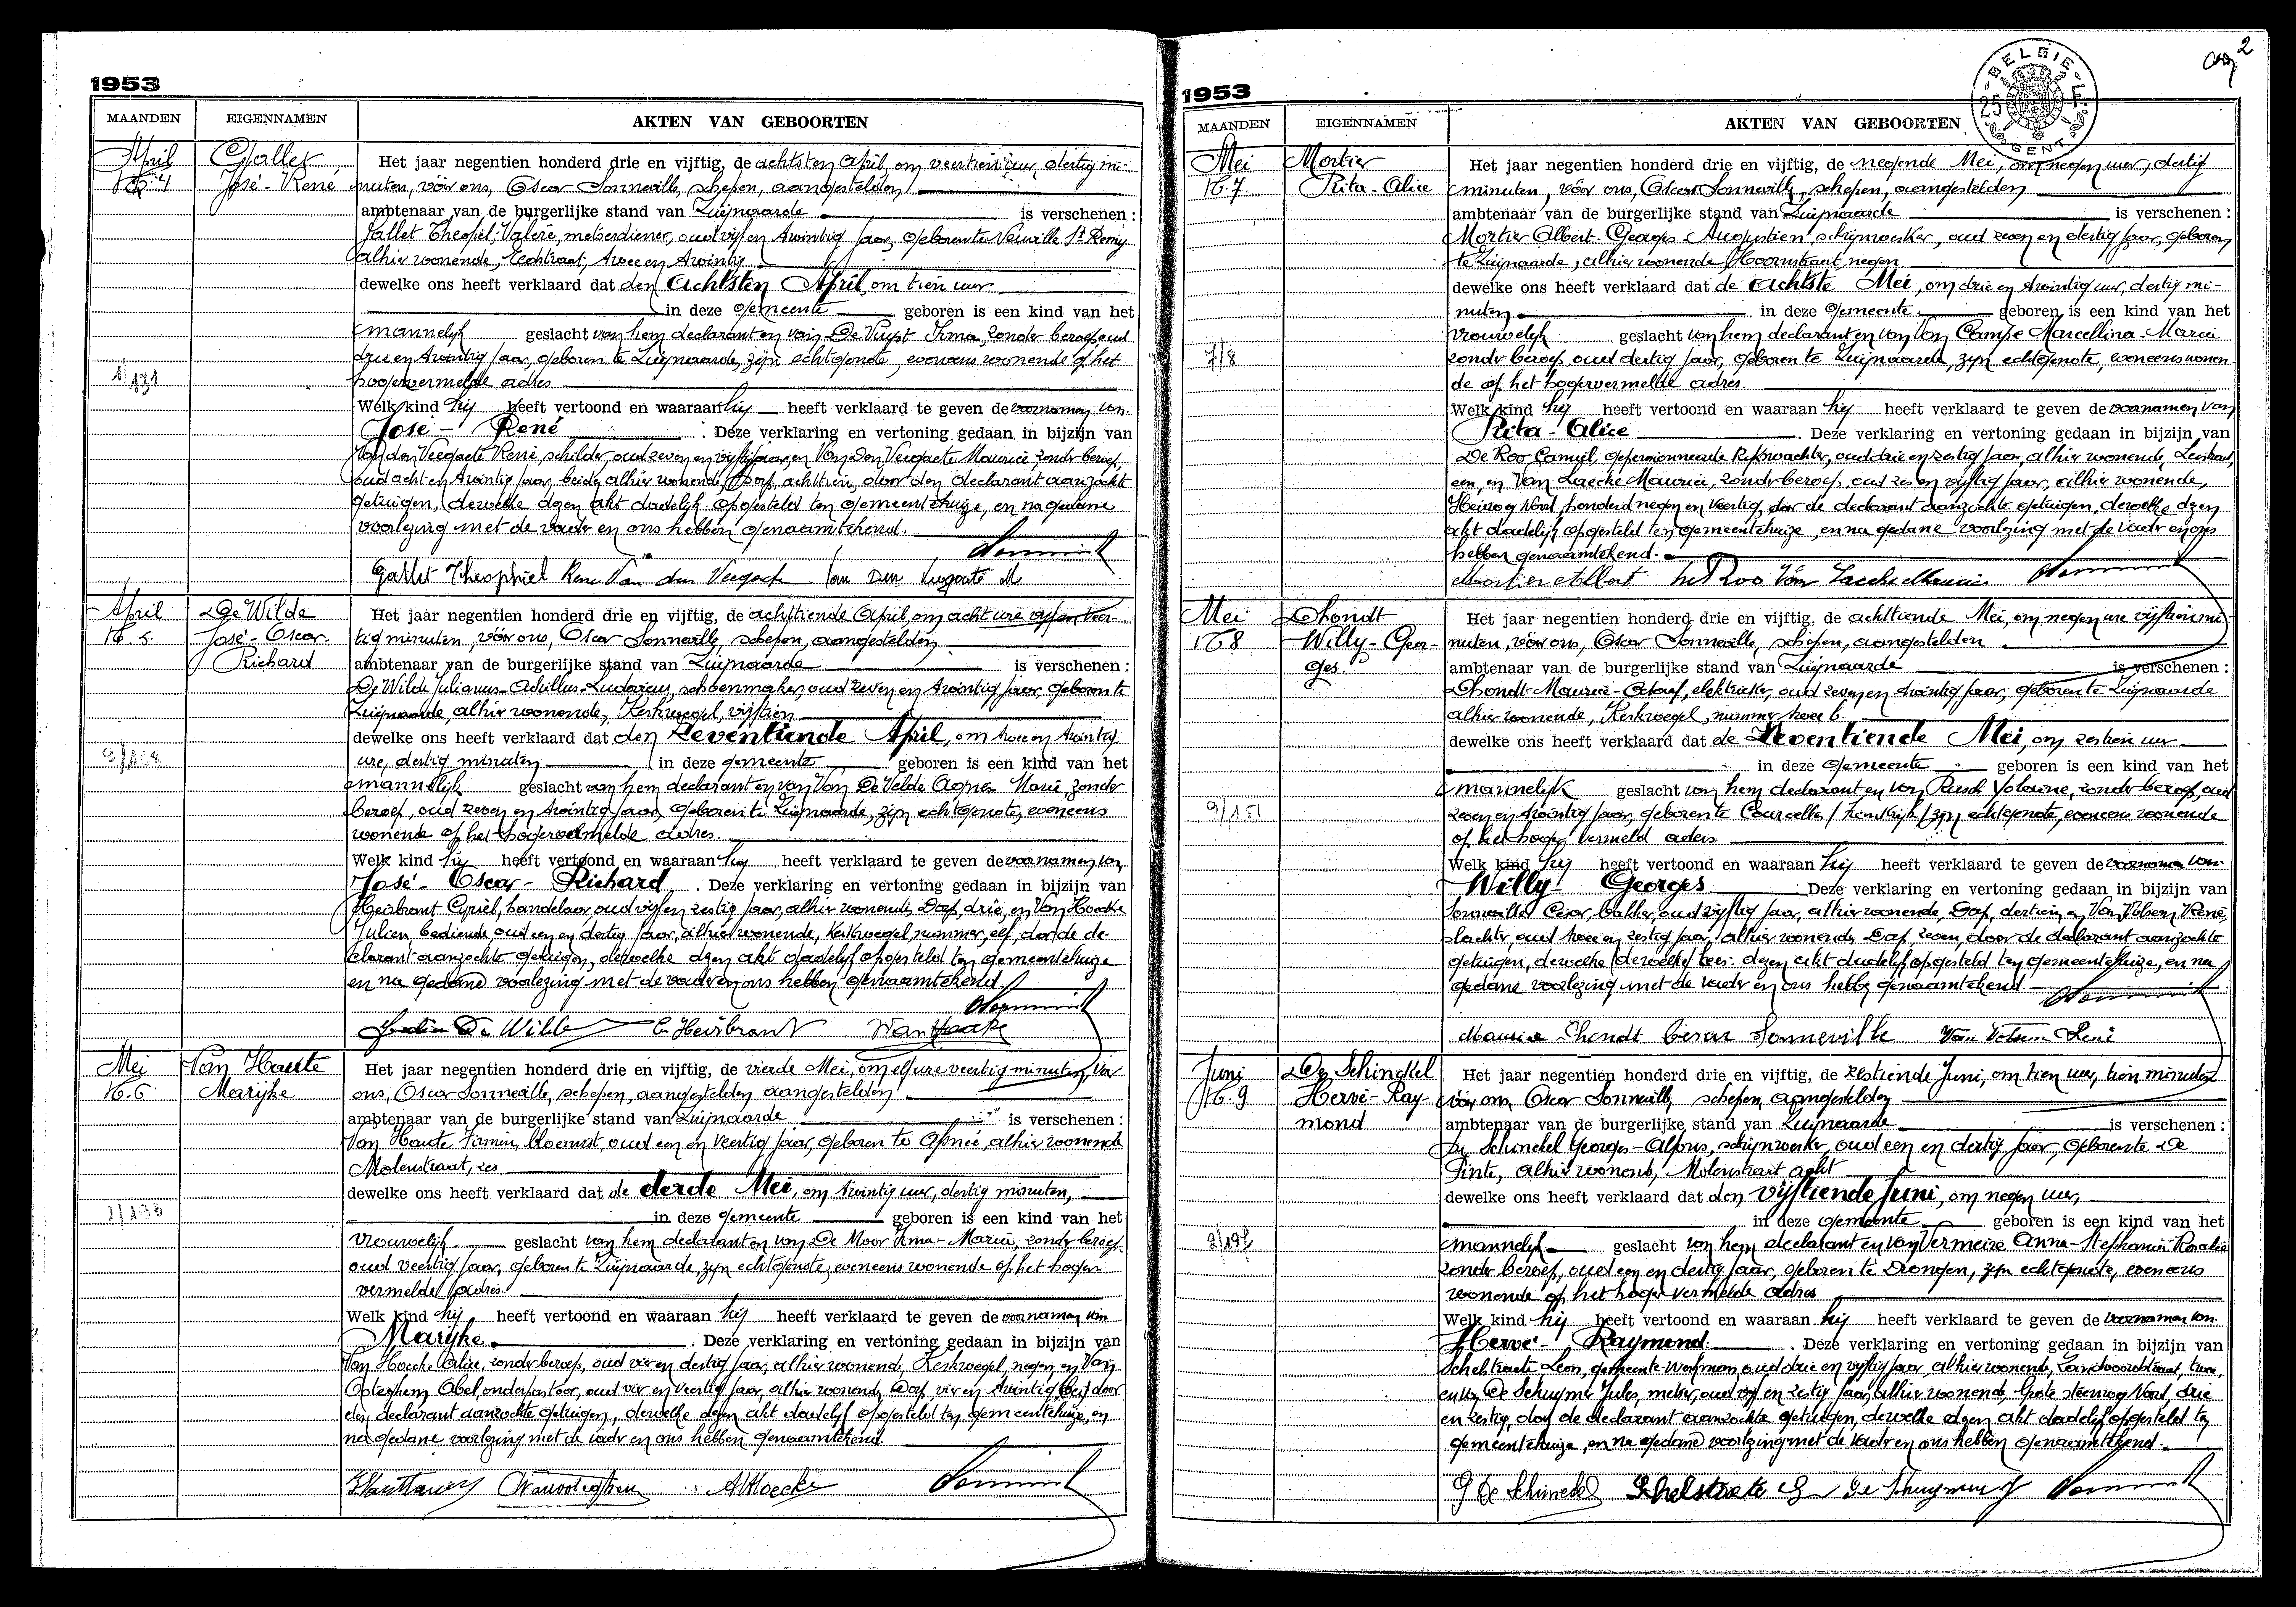 1953
MAANDEN EIGENNAMEN AKTEN VAN GEBOORTEN
April
N° 4
Gallet
José-René
Het jaar negentien honderd drie en vijftig, de achtsten April, om veertien uur, dertig mi-
nuten, vóór ons, Oscar Sonneville, schepen, aangestelden
ambtenaar van de burgerlijke stand van Zwijnaarde is verschenen :
Gallet Theophiel, Valère, metserdiener, oud vijf en twintig jaar, geboren te Neuville St Remy
alhier wonende, twee en twintig
dewelke ons heeft verklaard dat den achtsten April, om tien uur
in deze gemeente geboren is een kind van het
mannelijk geslacht van hem declarant en van De Vuyst Irma, zonder beroep oud
drie en twintig jaar, geboren te Zwijnaarde, zijn echtgenote, eveneens wonende op het
hogervermelde adres
Welk kind hij heeft vertoond en waaraan hij heeft verklaard te geven de voornamen van
José - René . Deze verklaring en vertoning gedaan in bijzijn van
Van den Veegaete René, schilder, oud zeven en vijftig jaar, en Van Den Veegaete Maurice, zonder beroep,
oud acht en twintig jaar, beide alhier wonende, Dorp, achttien, door den declarant aanzochte
getuigen, dewelke dezen akt dadelijk opgesteld ten gemeentehuize, en na gedane
voorlezing met de vader en ons hebben genaamtekend.
Gallet Theophiel René Van den Veegaete Van Den Veegaete M
April
N° 5
De Wilde
José-Oscar
Richard
Het jaar negentien honderd drie en vijftig, de achttiende April, om acht ure vijf en veer-
tig minuten, vóór ons, Oscar Sonneville, schepen, aangestelden
ambtenaar van de burgerlijke stand van Zwijnaarde is verschenen :
De Wilde Julianus-Achillus-Ludovicus, schoenmaker, oud zeven en twintig jaar, geboren te
Zwijnaarde, alhier wonende, Kerkwegel, vijftien
dewelke ons heeft verklaard dat den Zeventiende April, om twee en twintig
ure, dertig minuten in deze gemeente geboren is een kind van het
mannelijk geslacht van hem declarant en van Van De Velde Agnes Marie, zonder
beroep, oud zeven en twintig jaar, geboren te Zwijnaarde, zijn echtgenote, eveneens
wonende op het hogervermelde adres.
Welk kind hij heeft vertoond en waaraan hij heeft verklaard te geven de voornamen van
José - Oscar - Richard . Deze verklaring en vertoning gedaan in bijzijn van
Heirbrant Cyriel, handelaar, oud vijf en zestig jaar, alhier wonende, Dorp, drie, en Van Hoecke
Julien, bediende oud een en dertig jaar, alhier wonende, Kerkwegel, nummer, elf, door de de-
clarant aanzochte getuigen, dewelke dezen akt dadelijk opgesteld ten gemeentehuize
en na gedane voorlezing met de vader en ons hebben genaamtekend.
De Wilde C. Heirbrant Van Hoecke
Mei
N° 6
Van Haute
Marijke
Het jaar negentien honderd drie en vijftig, de vierde Mei, om elf ure veertig minuten, vóór
ons, Oscar Sonneville, schepen, aangestelden aangestelden
ambtenaar van de burgerlijke stand van Zwijnaarde is verschenen :
Van Haute Firmin, bloemist, oud een en veertig jaar, geboren te Afsnee, alhier wonende
Molenstraat, zes
dewelke ons heeft verklaard dat de derde Mei, om twintig uur, dertig minuten,
in deze gemeente geboren is een kind van het
vrouwelijk geslacht van hem declarant en van De Moor Irma-Marie, zonder beroep
oud veertig jaar, geboren te Zwijnaarde, zijn echtgenote, eveneens wonende op het hoger
vermelde adres.
Welk kind hij heeft vertoond en waaraan hij heeft verklaard te geven de voornamen van
Marijke . Deze verklaring en vertoning gedaan in bijzijn van
Van Hoecke Alice, zonder beroep, oud vier en dertig jaar, alhier wonende, Kerkwegel, negen, en Van
Ooteghem Abel, onderpastoor, oud vier en veertig jaar, alhier wonende, Dorp, vier en twintig, door
den declarant aanzochte getuigen, dewelke dezen akt dadelijk opgesteld ten gemeentehuize, en
na gedane voorlezing met de vader en ons hebben genaamtekend.
1953
MAANDEN EIGENNAMEN AKTEN VAN GEBOORTEN
BELGIE
GENT
2
Mei
N° 7
7/8
Mortier
Rita-Alice
Het jaar negentien honderd drie en vijftig, de negende Mei, om negen uur, dertig
minuten, vóór ons, Oscar Sonneville, schepen, aangestelden
ambtenaar van de burgerlijke stand van Zwijnaarde is verschenen :
Mortier Albert-Georges Augustien, schrijnwerker, oud zeven en dertig jaar, geboren
te Zwijnaarde, alhier wonende, Hoornstraat, negen
dewelke ons heeft verklaard dat de achtste Mei, om drie en twintig uur, dertig mi-
nuten in deze gemeente geboren is een kind van het
vrouwelijk geslacht van hem declarant en van Van Campe Marcellina-Marie
zonder beroep, oud dertig jaar, geboren te Zwijnaarde, zijn echtgenote, eveneens wonen-
de op het hogervermelde adres.
Welk kind hij heeft vertoond en waaraan hij heeft verklaard te geven de voornamen van
Rita-Alice . Deze verklaring en vertoning gedaan in bijzijn van
De Roo Camiel, gepensionneerde, oud drie en zestig jaar, alhier wonende,
een, en Van Laecke Maurice, zonder beroep, oud zes en vijftig jaar, alhier wonende,
Heirweg Noord, honderd negen en veertig, door de declarant aanzochte getuigen, dewelke dezen
akt dadelijk opgesteld ten gemeentehuize, en na gedane voorlezing met de vader en ons
hebben genaamtekend.
Mortier Albert
Mei
N° 8
9/151
Dhondt
Willy-Geor-
ges.
Het jaar negentien honderd drie en vijftig, de achttiende Mei, om negen ure vijftien mi-
nuten, vóór ons, Oscar Sonneville, schepen, aangestelden
ambtenaar van de burgerlijke stand van Zwijnaarde is verschenen :
Dhondt-Maurice-Octaaf, elektrieker, oud zeven en twintig jaar, geboren te Zwijnaarde
alhier wonende, Kerkwegel, nummer twee b.
dewelke ons heeft verklaard dat de Zeventiende Mei, om zestien uur
in deze gemeente geboren is een kind van het
mannelijk geslacht van hem declarant en van Yolaine, zonder beroep, oud
zeven en twintig jaar, geboren te Courcelles /Frankrijk/ zijn echtgenote, eveneens wonende
op het hoger vermeld adres
Welk kind hij heeft vertoond en waaraan hij heeft verklaard te geven de voornamen van
Willy Georges Deze verklaring en vertoning gedaan in bijzijn van
Sonneville Cesar, bakker, oud vijftig jaar, alhier wonende, Dorp, dertien en Van Volsem René,
slachter, oud twee en zestig jaar, alhier wonende, Dorp, zeven, door de declarant aanzochte
getuigen, dewelke (dewelke) dezen akt dadelijk opgesteld ten gemeentehuize, en na
gedane voorlezing met de vader en ons hebben genaamtekend.
Maurice Dhondt Cesar Sonneville Van Volsem René
Juni
N° 9
De Schinckel
Hervé-Ray-
mond
Het jaar negentien honderd drie en vijftig, de zestiende Juni, om tien uur, tien minuten
vóór ons, Oscar Sonneville, schepen, aangestelden
ambtenaar van de burgerlijke stand van Zwijnaarde is verschenen :
De Schinckel Georges-Alfons, schrijnwerker, oud een en dertig jaar, geboren te De
Pinte, alhier wonende, Molenstraat acht
dewelke ons heeft verklaard dat den vijftiende Juni, om negen uur,
in deze gemeente geboren is een kind van het
mannelijk geslacht van hem declarant en van Vermeire Anna-Stephanie Rosalie
zonder beroep, oud een en dertig jaar, geboren te Drongen, zijn echtgenote, eveneens
wonende op het hoger vermelde adres
Welk kind hij heeft vertoond en waaraan hij heeft verklaard te geven de voornamen van
Hervé - Raymond. . Deze verklaring en vertoning gedaan in bijzijn van
Schelstraete Leon, gemeente-werkman, oud drie en vijftig jaar, alhier wonende,
en De Schuymer Jules, metser, oud vijf en zestig jaar, alhier wonende, Grote steenweg Noord, drie
en zestig, door de declarant aanzochte getuigen, dewelke dezen akt dadelijk opgesteld ten
gemeentehuize, en na gedane voorlezing met de vader en ons hebben genaamtekend.
G De Schinckel Schelstraete